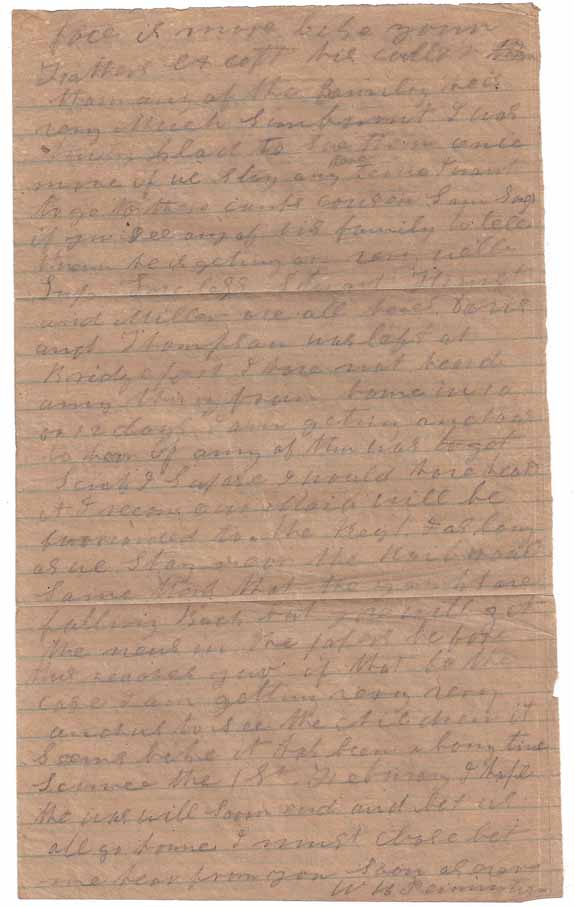 face is more like your
Fathers except his
than any of the Family he is
very Much Sunburnt I was
very glad to See them once
more if we stay any long time I want
to go to there
if you See any of his family to tell
them he is getting on very well
and Miller are all here. Davis
and Thompson was left at
Bridgeport I have not heard
any thing from home in 10
or 12 days I am getin anctous
to hear if any of them was to get
Sick I Supose I would have heard
it I recon our Mail will be
forwarded to the Regt as long
as we Stay near the Rail road
Some think that the yankees are
falling Back but you will get
the news in the papers before
this reaches you if that be the
case I am getting very very
anctus to see the children it
Seems like it has been a long time
Science the 1st February I hope
the war will Soon end and let us
all go home I must Close let
me hear from you Soon as
W H